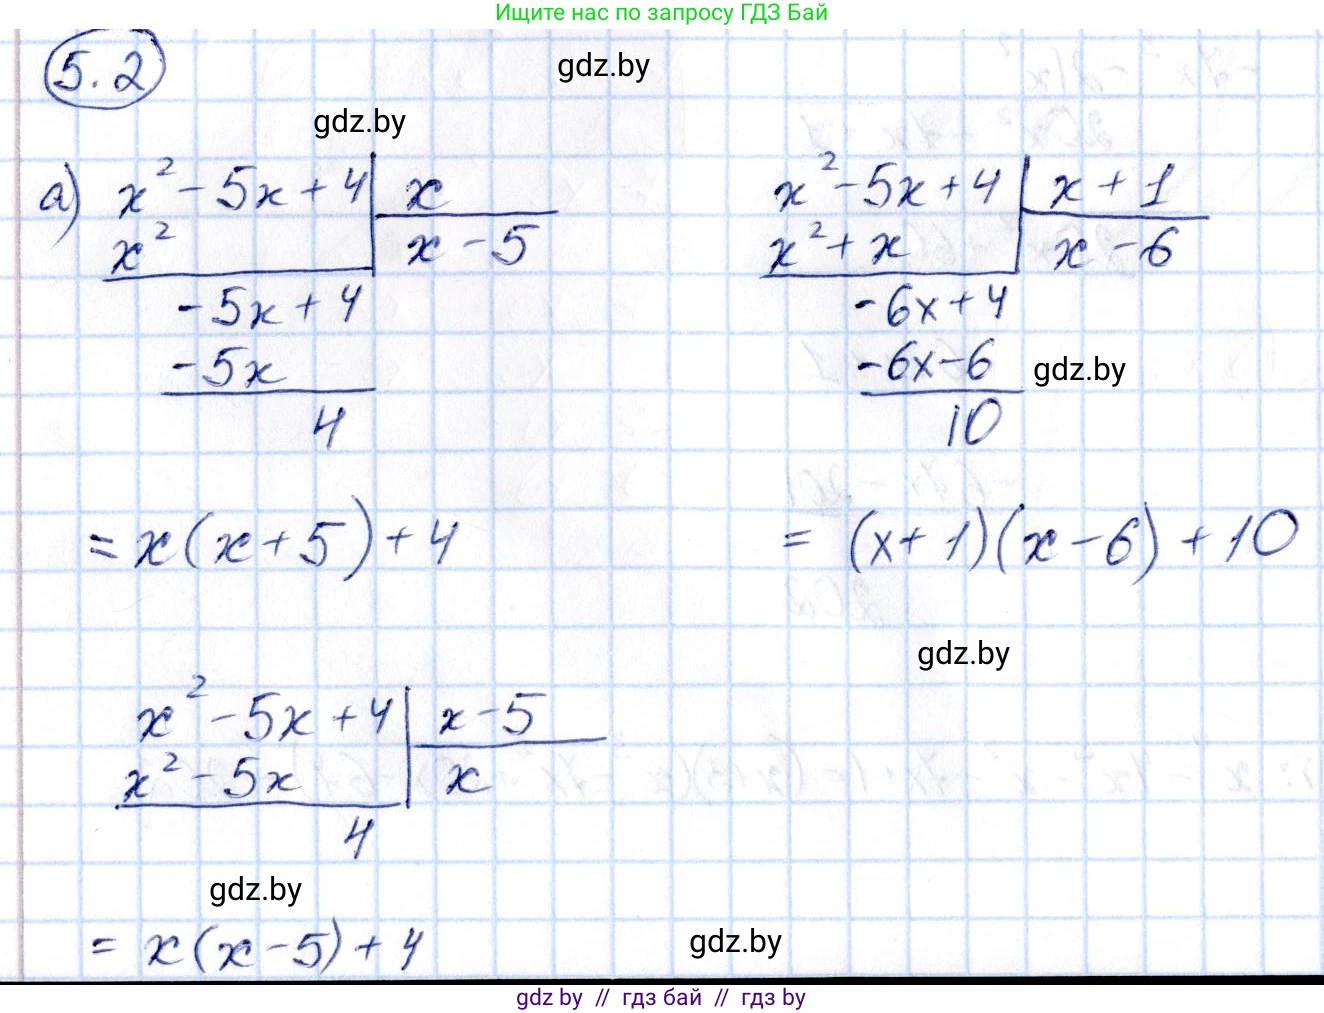 Ищите нас по запросу ГДЗ Бай
5.2
gdz.by
gdz.by
а) x² - 5x + 4 | x
x² | x - 5
-5x + 4
-5x
4
= x(x + 5) + 4
x² - 5x + 4 | x + 1
x² + x | x - 6
-6x + 4
-6x - 6
gdz.by
10
= (x + 1)(x - 6) + 10
gdz.by
x² - 5x + 4 | x - 5
x² - 5x | x
4
gdz.by
= x(x - 5) + 4
gdz.by
gdz by // гдз бай // гдз by